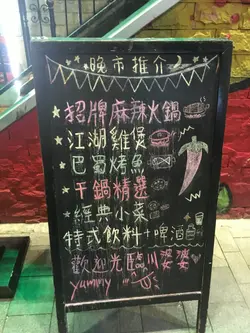 晚市推介
招牌麻辣火鍋
江湖雞煲
巴蜀烤魚
干鍋精選
經典小菜
特式飲料+啤酒
歡迎光臨川婆婆
yummy